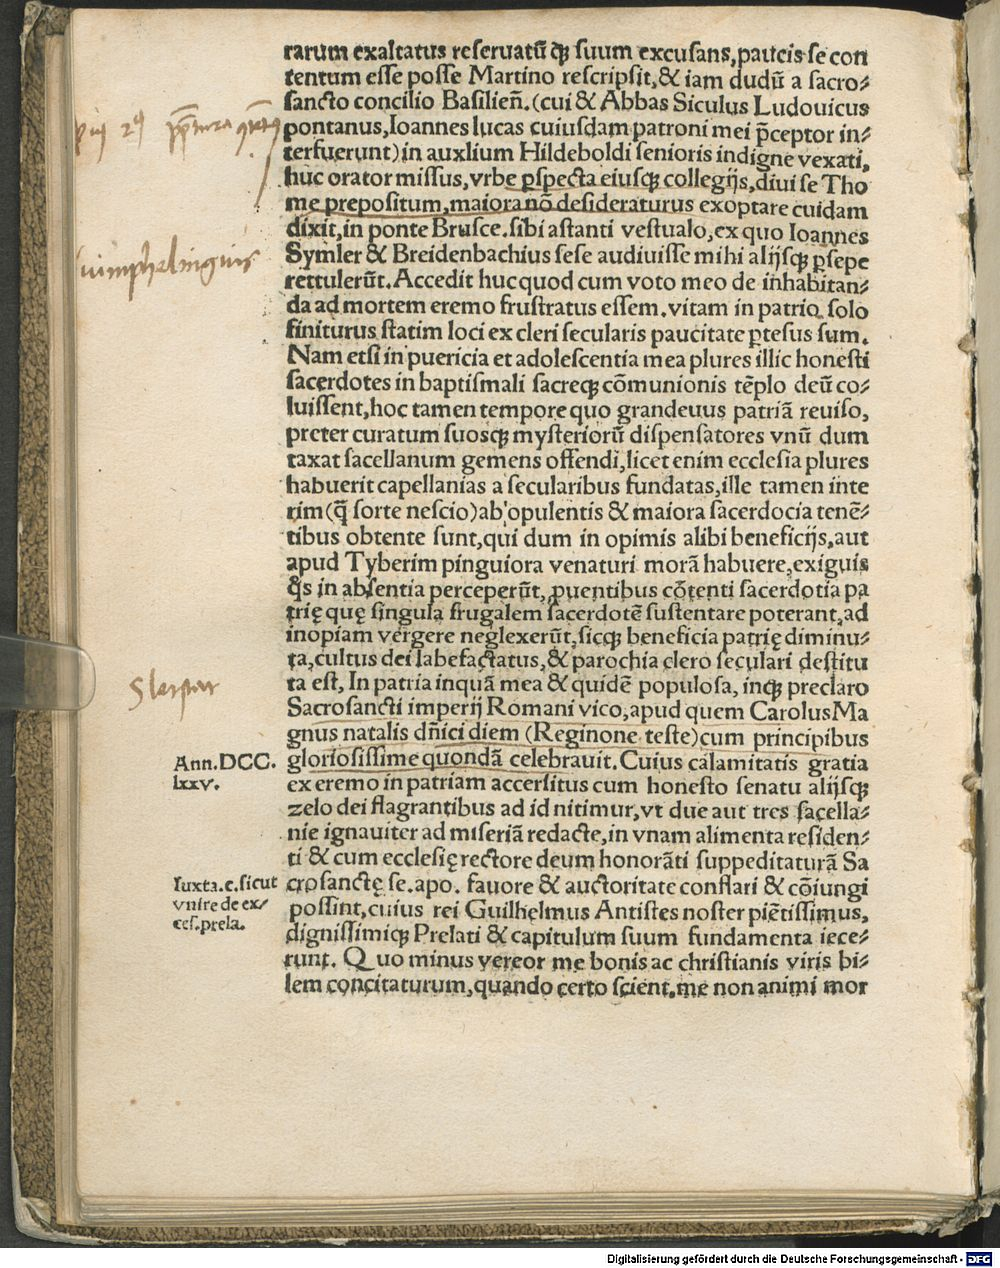 rarum exaltatus reseruatū qꝫ suum excusans, paucis se con
tentum esse posse Martino rescripsit, & iam dudū a sacro⸗
sancto concilio Basilien̄. (cui & Abbas Siculus Ludouicus
pontanus, Ioannes lucas cuiusdam patroni mei p̄ceptor in⸗
terfuerunt) in auxlium Hildeboldi senioris indigne vexati,
huc orator missus, vrbe ꝑspecta eiusqꝫ collegijs, diui se Tho
me prepositum, maiora nō desideraturus exoptare cuidam
dixit, in ponte Brusce. sibi astanti vestualo, ex quo Ioannes
vimphelingius
Symler & Breidenbachius sese audiuisse mihi alijsqꝫ ꝑsepe
rettulerūt. Accedit huc quod cum voto meo de inhabitan⸗
da ad mortem eremo frustratus essem. vitam in patrio solo
finiturus statim loci ex cleri secularis paucitate ꝑtesus sum.
Nam etsi in puericia et adolescentia mea plures illic honesti
sacerdotes in baptismali sacreqꝫ cōmunionis tēplo deū co⸗
luissent, hoc tamen tempore quo grandeuus patriā reuiso,
preter curatum suosqꝫ mysteriorū dispensatores vnū dum
taxat sacellanum gemens offendi, licet enim ecclesia plures
habuerit capellanias a secularibus fundatas, ille tamen inte
rim (q̄ sorte nescio) ab opulentis & maiora sacerdocia tenē⸗
tibus obtente sunt, qui dum in opimis alibi beneficijs, aut
apud Tyberim pinguiora venaturi morā habuere, exiguis
q̄s in absentia perceperūt, ꝓuentibus cōtenti sacerdotia pa
trię quę singula frugalem sacerdotē sustentare poterant, ad
inopiam vergere neglexerūt, sicqꝫ beneficia patrię diminu⸗
ta, cultus dei labefactatus, & parochia clero seculari destitu
ta est, In patria inquā mea & quidē populosa, inqꝫ preclaro
Sacrosancti imperij Romani vico, apud quem Carolus Ma
gnus natalis dn̄ici diem (Reginone teste) cum principibus
Ann. DCC.
lxxv.
gloriosissime quondā celebrauit. Cuius calamitatis gratia
ex eremo in patriam accersitus cum honesto senatu alijsqꝫ
zelo dei flagrantibus ad id nitimur, vt due aut tres sacella⸗
nie ignauiter ad miseriā redacte, in vnam alimenta residen⸗
ti & cum ecclesię rectore deum honorāti suppeditaturā Sa
Iuxta. c. sicut
vnire de ex⸗
ces. prela.
crosanctę se. apo. fauore & auctoritate conflari & cōiungi
possint, cuius rei Guilhelmus Antistes noster piētissimus,
dignissimiqꝫ Prelati & capitulum suum fundamenta iece⸗
runt. Quo minus vereor me bonis ac christianis viris bi⸗
lem concitaturum, quando certo scient. me non animi mor
Digitalisierung gefördert durch die Deutsche Forschungsgemeinschaft - DFG